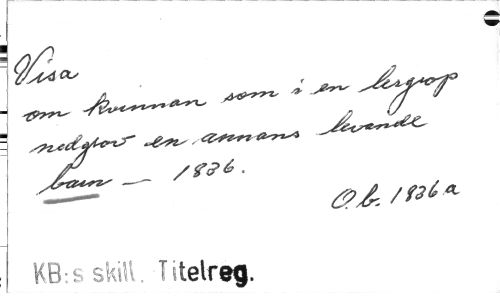 Visa
om kvinnan som i en lergrop
nedgrov en annans levande
barn — 1836.
O.b. 1836 a
KB:s skill. Titelreg.